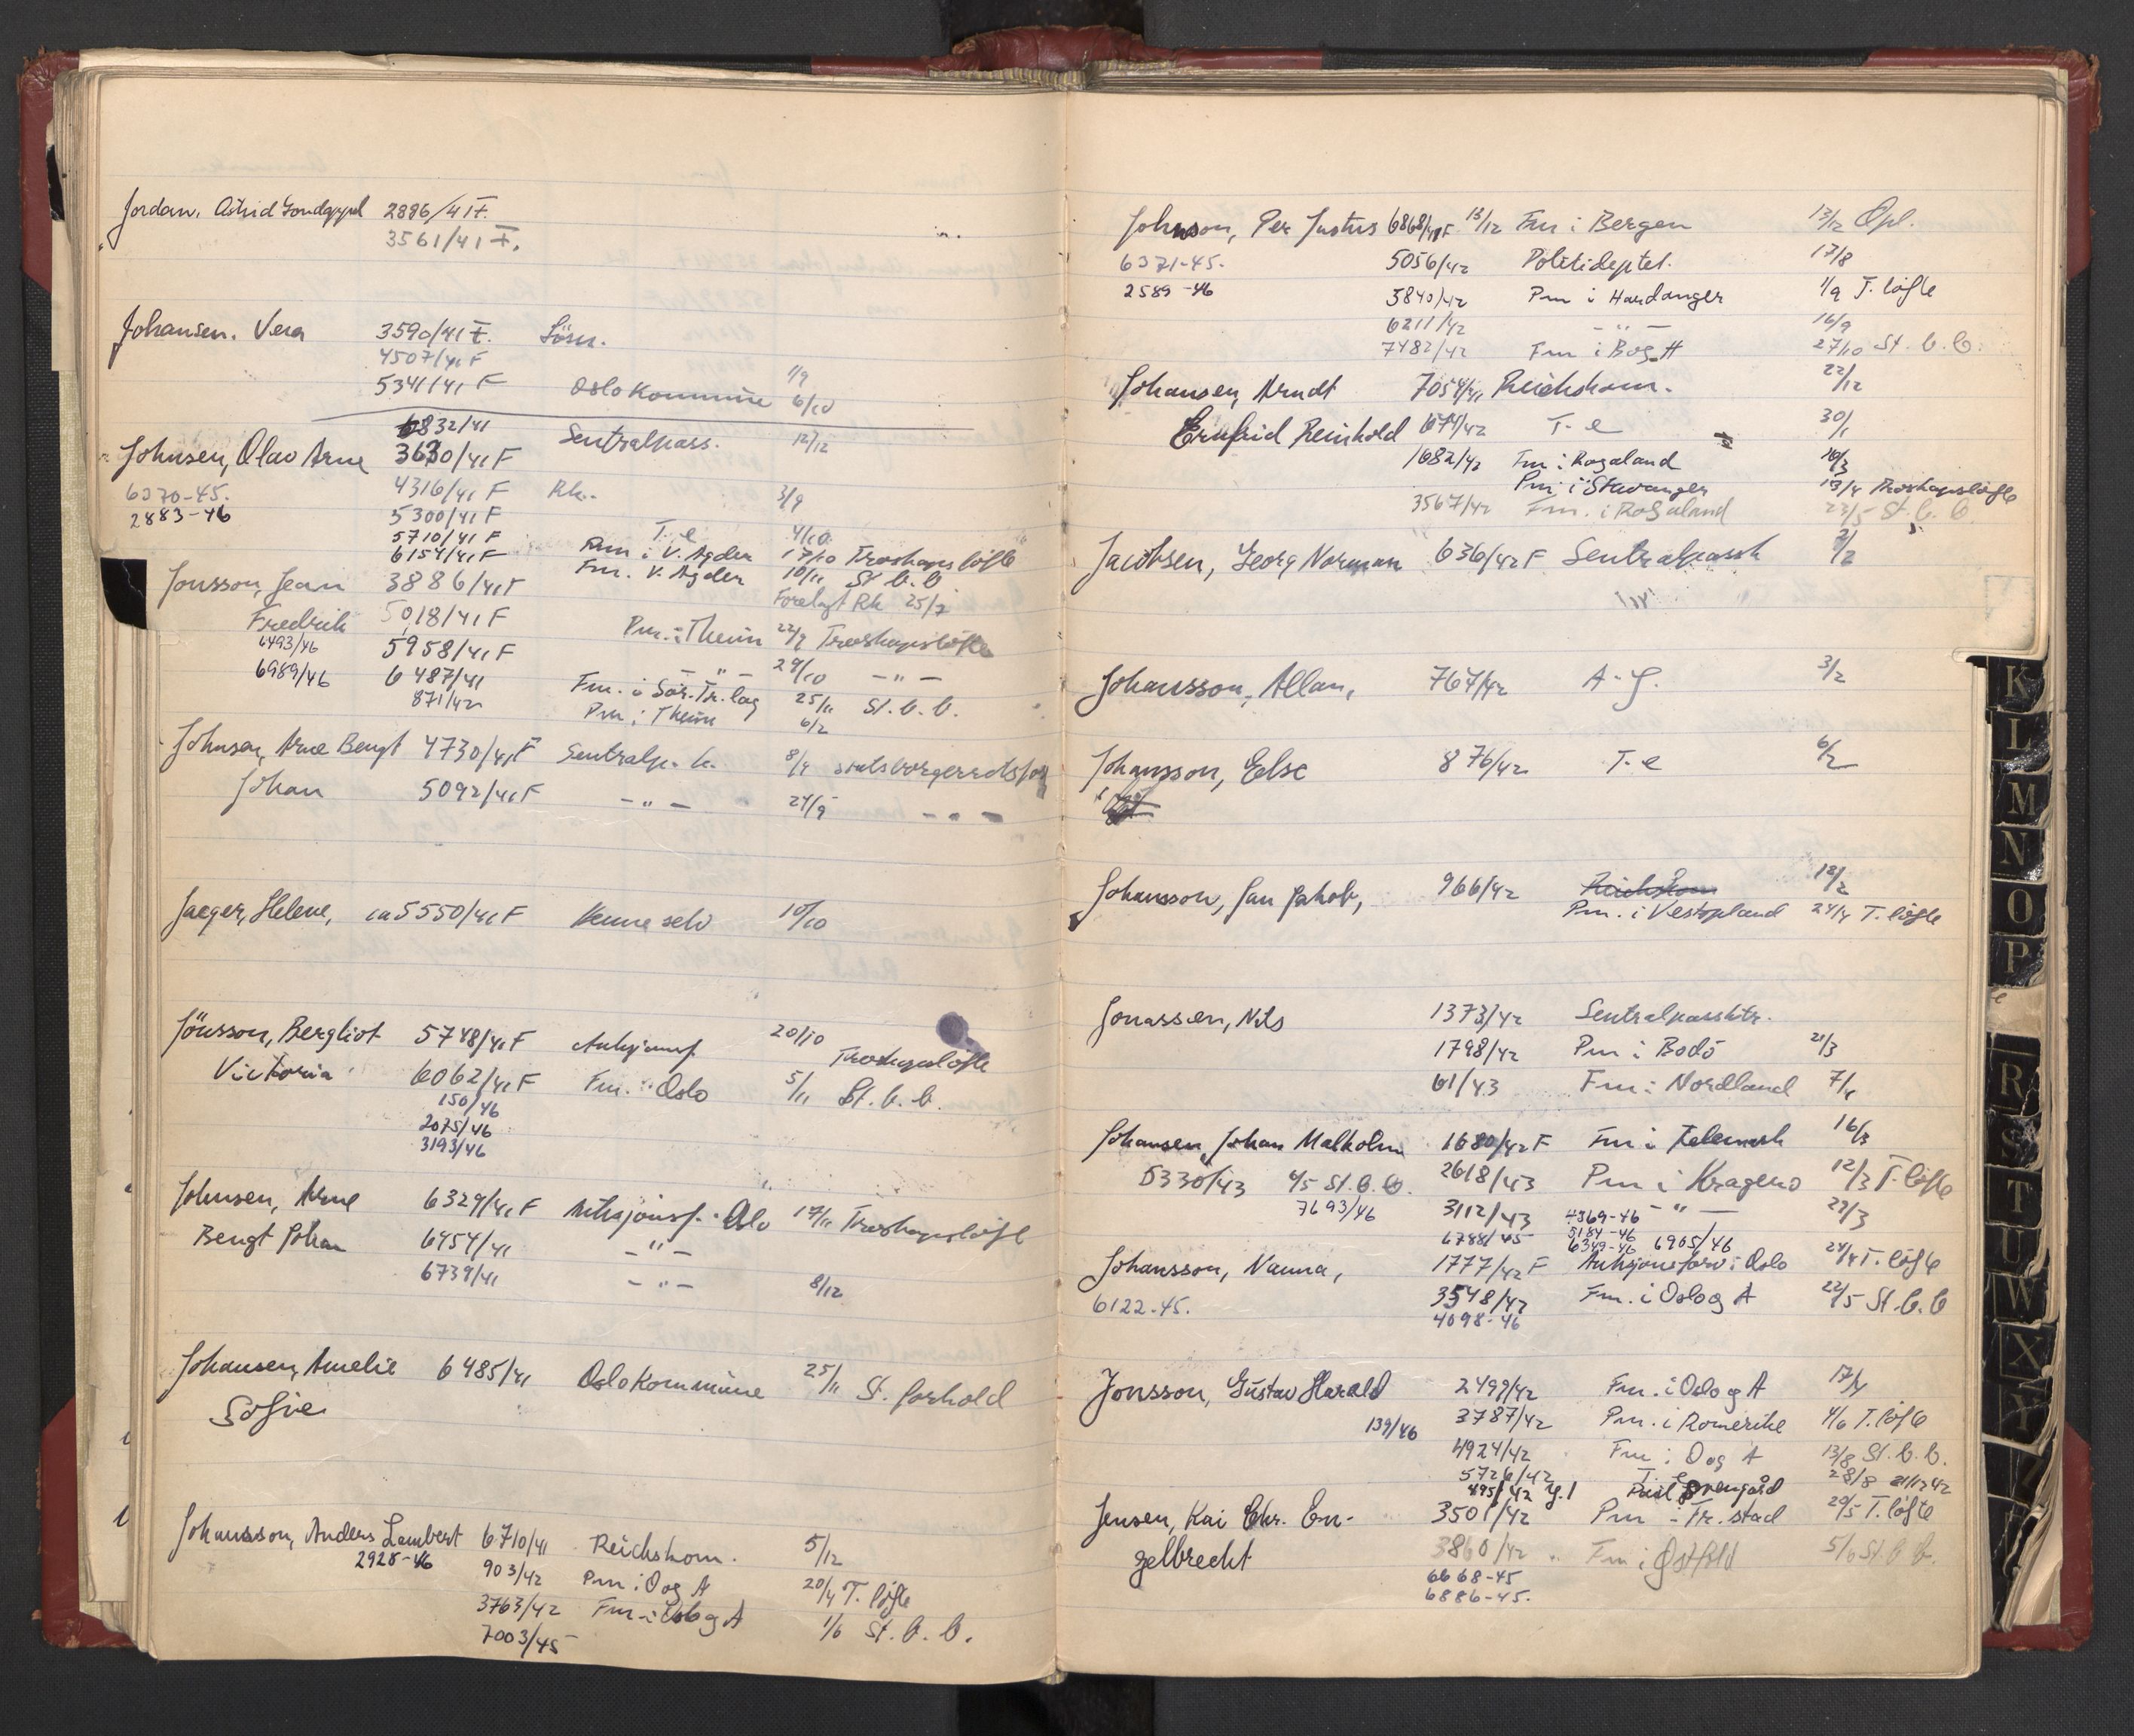 Jordan, Astrid 2896/41 F.
3561/41 F.
Johansen, Vera 3590/41 F. Lösn.
4507/41 F 1/9
5341/41 F Oslo Kommune 6/10
6832/41 Sentralpass. 12/12
Johnsen, Olav Arne 3630/41 F
6370-45. 4316/41 F Rk. 3/9
2883-46 5300/41 F
5710/41 F T. e 4/10
6154/41 F Pm i V. Agder 17/10 Troskapslöfte
Fm. V. Agder 10/11 St. b. b
Jonsson, Jean 3886/41 F Forelagt Rk 25/7
Fredrik 5018/41 F Pm. i Theim 22/9 Troskapslöfte
6493/46 5958/41 F
6989/46 6487/41 – " – 29/10 – " –
871/42 Fm. i Sör-Tr.lag 25/11 St. b. b.
Pm. i Theim 6/2
Johnsen, Arne Bengt 4730/41 F Sentralp. k. 8/9 statsborgerretsfor
Johan 5092/41 F – " – 24/9 – " –
Jaeger, Helene, ca 5550/41 F Henne selv 10/10
Jönsson, Bergliot 5748/41 F Auksjonsf. 20/10 Troskapslöfte
Victoria 6062/41 F Fm. i Oslo 5/11 St. b. b.
150/46
2075/46
3193/46
Johnsen, Arne 6329/41 F Auksjonsf. i Oslo 17/11 Troskapslöfte
Bengt Johan 6454/41 – " –
6739/41 – " – 8/12
Johansen, Amelie 6485/41 Oslo Kommune 25/11 St. forhold
Sofie
Johansson, Anders Lambert 6710/41 Reichskom. 5/12
2928-46 903/42 Pm i O og A 20/4 T. löfte
3763/42 Fm. i Oslo og A 1/6 St. b. b.
7003/45
Johnson, Per Justus 6868/41 F 13/12 Fm i Bergen 13/12 Opl.
6371-45. 5056/42 Politideptet. 17/8
2589-46 5840/42 Pm i Hardanger 1/9 T. löfte
6211/42 – " – 16/9
7482/42 Fm i B og H 27/10 St. b. b.
Johansen, Arndt 7054/41 Reichskom. 22/12
Ernfrid Reinhold 674/42 T. e 30/1
1682/42 Fm i Rogaland
Pm i Stavanger 13/4 Troskapslöfte
3567/42 Fm. i Rogaland 22/5 St. b. b
Jacobsen, Georg Norman 636/42 F Sentralpassk
Johansson, Allan, 764/42 3/2
Johansson, Else 876/42 T. e 6/2
Johansson, Jan Jakob, 966/42 Reichskom 12/2
Pm. i Vestopland 24/4 T. löfte
Jonassen, Nils 1373/42 Sentralpassktr.
1798/42 Pm i Bodö 21/3
61/43 Fm i Nordland 7/1
Johansen, Johan Malkolm 1680/42 F Fm i Telemark 16/3
5330/43 4/5 St. b. b. 2618/43 Pm i Kragerö 12/3 T. löfte
7693/46 3112/43 4369-46 – " – 22/3
6788/45 5184-46
6349-46 6905/46
Johansson, Nanna, 1777/42 F Auksjonsforv. i Oslo 24/4 T. löfte
6122-45. 3548/42 Fm. i Oslo og A 22/5 St. b. b
4098-46
Jonsson, Gustav Harald 2499/42 Fm. i Oslo og A 17/4
139/46 3787/42 Pm. i Romerike 4/6 T. löfte
4924/42 Fm i O og A 13/8 St. b. b.
5726/42 T. e 28/8
895/42
Jensen, Kai Chr. En- 3501/42 Pm i Fr. stad 20/5 T. löfte
gelbrecht 3860/42 Fm i Østfold 5/6 St. b. b.
6668-45
6886-45.
K
L
M
N
O
P
R
S
T
U
W
X
Y